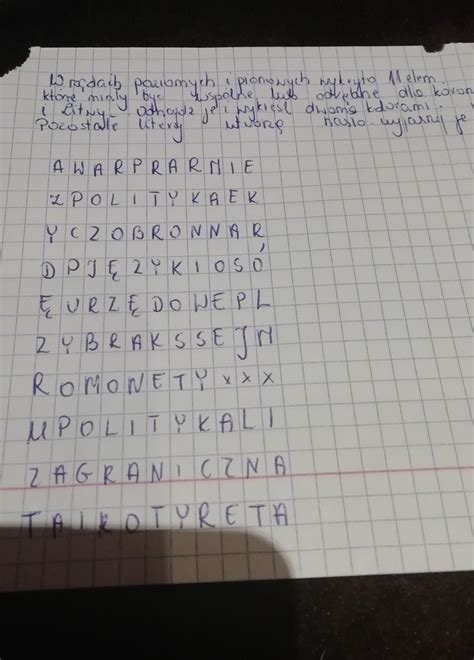 W rzędach poziomych i pionowych ukryto 11 elem.
które miały być wspólne lub odrębne dla koron
i Litwy. Odnajdź je i wykreśl dwoma kolorami.
Pozostałe litery utworzą hasło wyjaśnij je
A W A R P R A R N I E
Z P O L I T Y K A E K
Y C Z O B R O N N A R
D P J Ę Z Y K I O S Ó
Ę U R Z Ę D O W E P L
Z Y B R A K S S E J M
R O M O N E T Y x x x
U P O L I T Y K A L I
Z A G R A N I C Z N A
T A I K O T Y R E T A